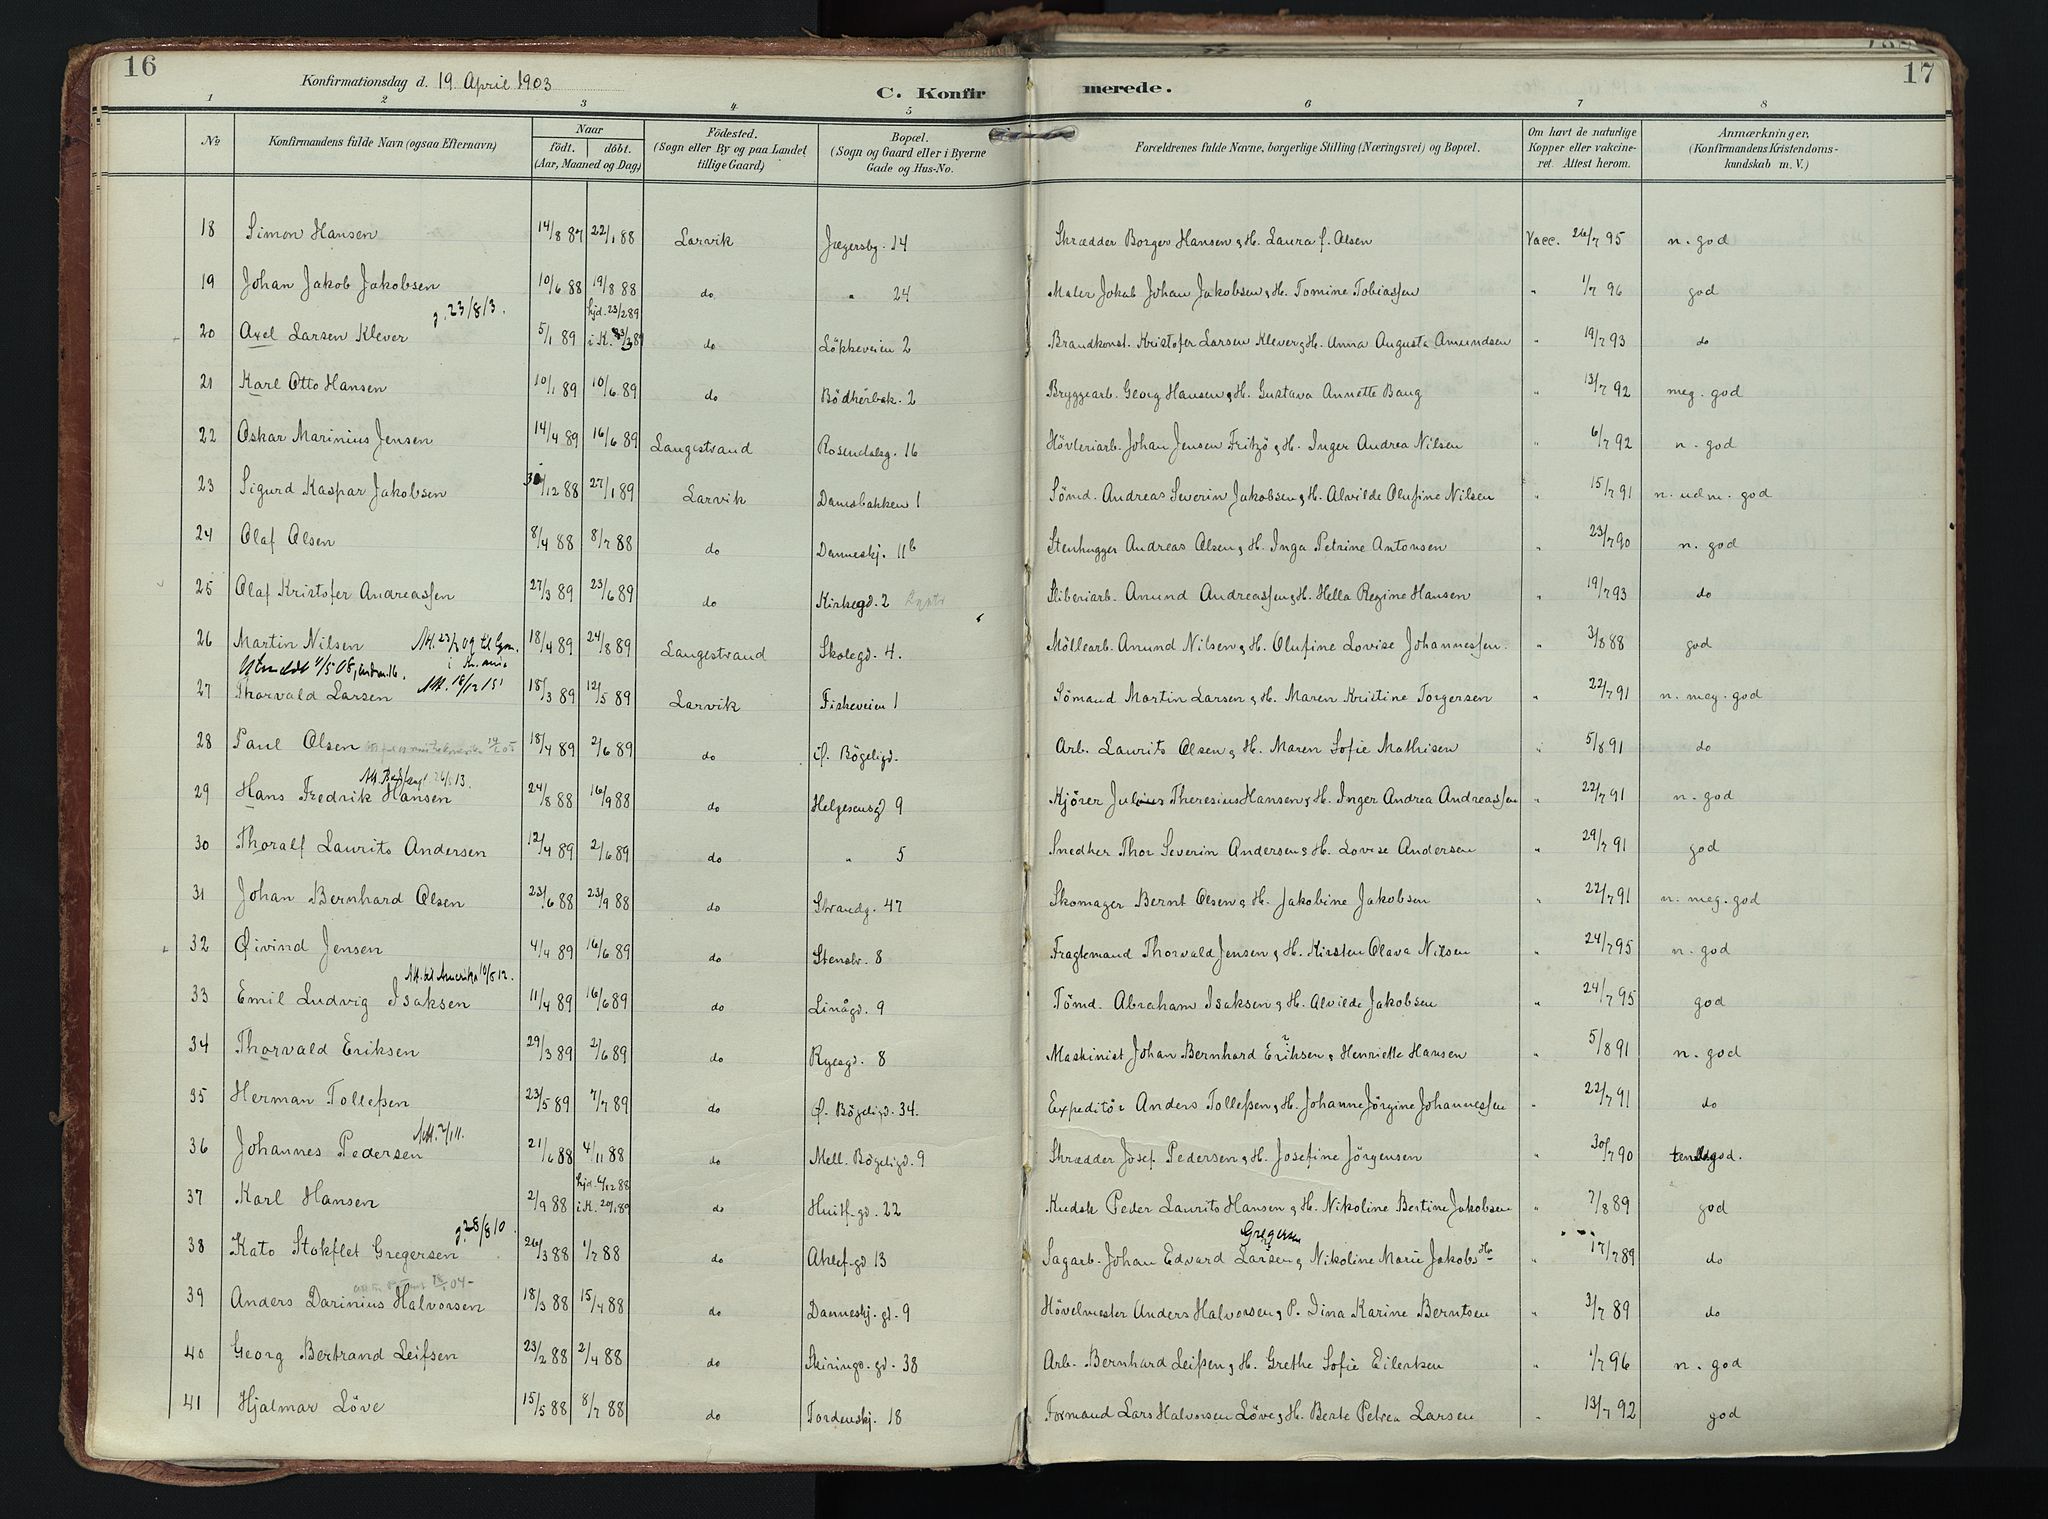 16
17
Konfirmationsdag d. 19. April 1903
C. Konfirmerede.
1 2 3 4 5 6 7 8
No
Konfirmandens fulde Navn (ogsaa Efternavn)
Naar
födt. döbt.
(Aar, Maaned og Dag)
Födested.
(Sogn eller By og paa Landet tillige Gaard)
Bopæl.
(Sogn og Gaard eller i Byerne Gade og Hus-No.
Forældrenes fulde Navne, borgerlige Stilling (Næringsvei) og Bopæl.
Om havt de naturlige Kopper eller vakcineret. Attest herom.
Anmærkninger,
(Konfirmandens Kristendomskundskab m. V.)
18 Simon Hansen 14/8 87 22/1 88 Larvik Jægersbg. 14 Skrædder Borger Hansen & H. Laura f. Olsen Vacc. 26/7 95 n. god
19 Johan Jakob Jakobsen 10/6 88 19/8 88 do " 24 Maler Jakob Johan Jakobsen & H. Tomine Tobiassen " 1/7 96 god
g. 23/8/3. hjd. 23/2 89
20 Axel Larsen Klever 5/1 89 i K. 3/3 89 do Lökkeveien 2 Brandkonst. Kristofer Larsen Klever & H. Anna Augusta Amundsen " 19/7 93 do
21 Karl Otto Hansen 10/1 89 10/6 89 do Bödkerbak. 2 Bryggearb. Georg Hansen & H. Gustava Annette Baug " 13/7 92 meg. god
22 Oskar Marinius Jensen 14/4 89 16/6 89 Langestrand Rosendalsg. 16 Hövleriarb. Johan Jensen Fritzö & H. Inger Andrea Nilsen " 6/7 92 n. god
23 Sigurd Kaspar Jakobsen 30/12 88 27/1 89 Larvik Damsbakken 1 Sömd. Andreas Severin Jakobsen & H. Alvilde Olufine Nilsen " 15/7 91 n. udm. god
24 Olaf Olsen 8/4 88 8/7 88 do Danneskj. 11b Stenhugger Andreas Olsen & H. Inga Petrine Antonsen " 23/7 90 n. god
25 Olaf Kristofer Andreassen 27/3 89 23/6 89 do Kirkegd. 2 Sliberiarb. Anund Andreassen & H. Hella Regine Hansen " 19/7 93 do
26 Martin Nilsen 18/4 89 24/8 89 Langestrand Skolegd. 4. Möllearb. Anund Nilsen & H. Olufine Lovise Johannessen. " 3/8 88 god
Utmeldt 11/5 08,
27 Thorvald Larsen 18/3 89 12/5 89 Larvik Fiskeveien 1 Sömand Martin Larsen & H. Maren Kristine Torgersen " 22/7 91 n. meg. god
28 Paul Olsen 18/4 89 2/6 89 do Ö. Bögeligd. Arb. Laurits Olsen & H. Maren Sofie Mathisen " 5/8 91 do
29 Hans Fredrik Hansen 24/8 88 16/9 88 do Helgesensgd 9 Kjörer Julius Theresius Hansen & H. Inger Andrea Andreassen " 22/7 91 n. god
30 Thoralf Laurits Andersen 12/4 89 2/6 89 do " 5 Snedker Thor Severin Andersen & H. Lovise Andersen " 29/7 91 god
31 Johan Bernhard Olsen 23/6 88 23/9 88 do Strandg. 47 Skomager Bernt Olsen & H. Jakobine Jakobsen " 22/7 91 n. meg. god
32 Øivind Jensen 4/4 89 16/6 89 do Stenstr. 8 Fragtemand Thorvald Jensen & H. Kirsten Olava Nilsen " 24/7 95 n. god
Att. til Amerika 10/5 12.
33 Emil Ludvig Isaksen 11/4 89 16/6 89 do Linågd. 9 Tömd. Abraham Isaksen & H. Alvilde Jakobsen " 24/7 95 god
34 Thorvald Eriksen 29/3 89 2/6 89 do Ryesgd. 8 Maskinist Johan Bernhard Eriksen & Henriette Hansen " 5/8 91 n. god
35 Herman Tollefsen 23/5 89 7/7 89 do Ö. Bögeligd. 34. Expeditör Anders Tollefsen & H. Johanne Jörgine Johannessen " 22/7 91 do
36 Johannes Pedersen 21/6 88 4/11 88 do Mell. Bögeligd. 9 Skrædder Josef Pedersen & H. Josefine Jörgensen " 30/7 90 god.
hjd. 4/12 88
37 Karl Hansen 2/9 88 i K. 20/1 89 do Huitf. gd. 22 Kudsk Peder Laurits Hansen & H. Nikoline Bertine Jakobsen " 7/8 89 god
g. 28/8/10. Gregersen
38 Kato Stokflet Gregersen 26/3 88 1/7 88 do Aklef. gd 13 Sagarb. Johan Edvard Larsen & Nikoline Marie Jakobs " 17/7 89 do
39 Anders Darinius Halvorsen 18/3 88 15/4 88 do Danneskj. gd. 9 Hövelmester Anders Halvorsen & P. Dina Karine Berntsen " 3/7 89 do
40 Georg Bertrand Leifsen 23/2 88 2/4 88 do Skiringd. gd. 38 Arb. Bernhard Leifsen & H. Grethe Sofie Eilertsen " 1/7 96 n. god
41 Hjalmar Löve 15/5 88 8/7 88 do Tordenskj. 18 Formand Lars Halvorsen Löve & H. Berte Petrea Larsen " 13/7 92 god